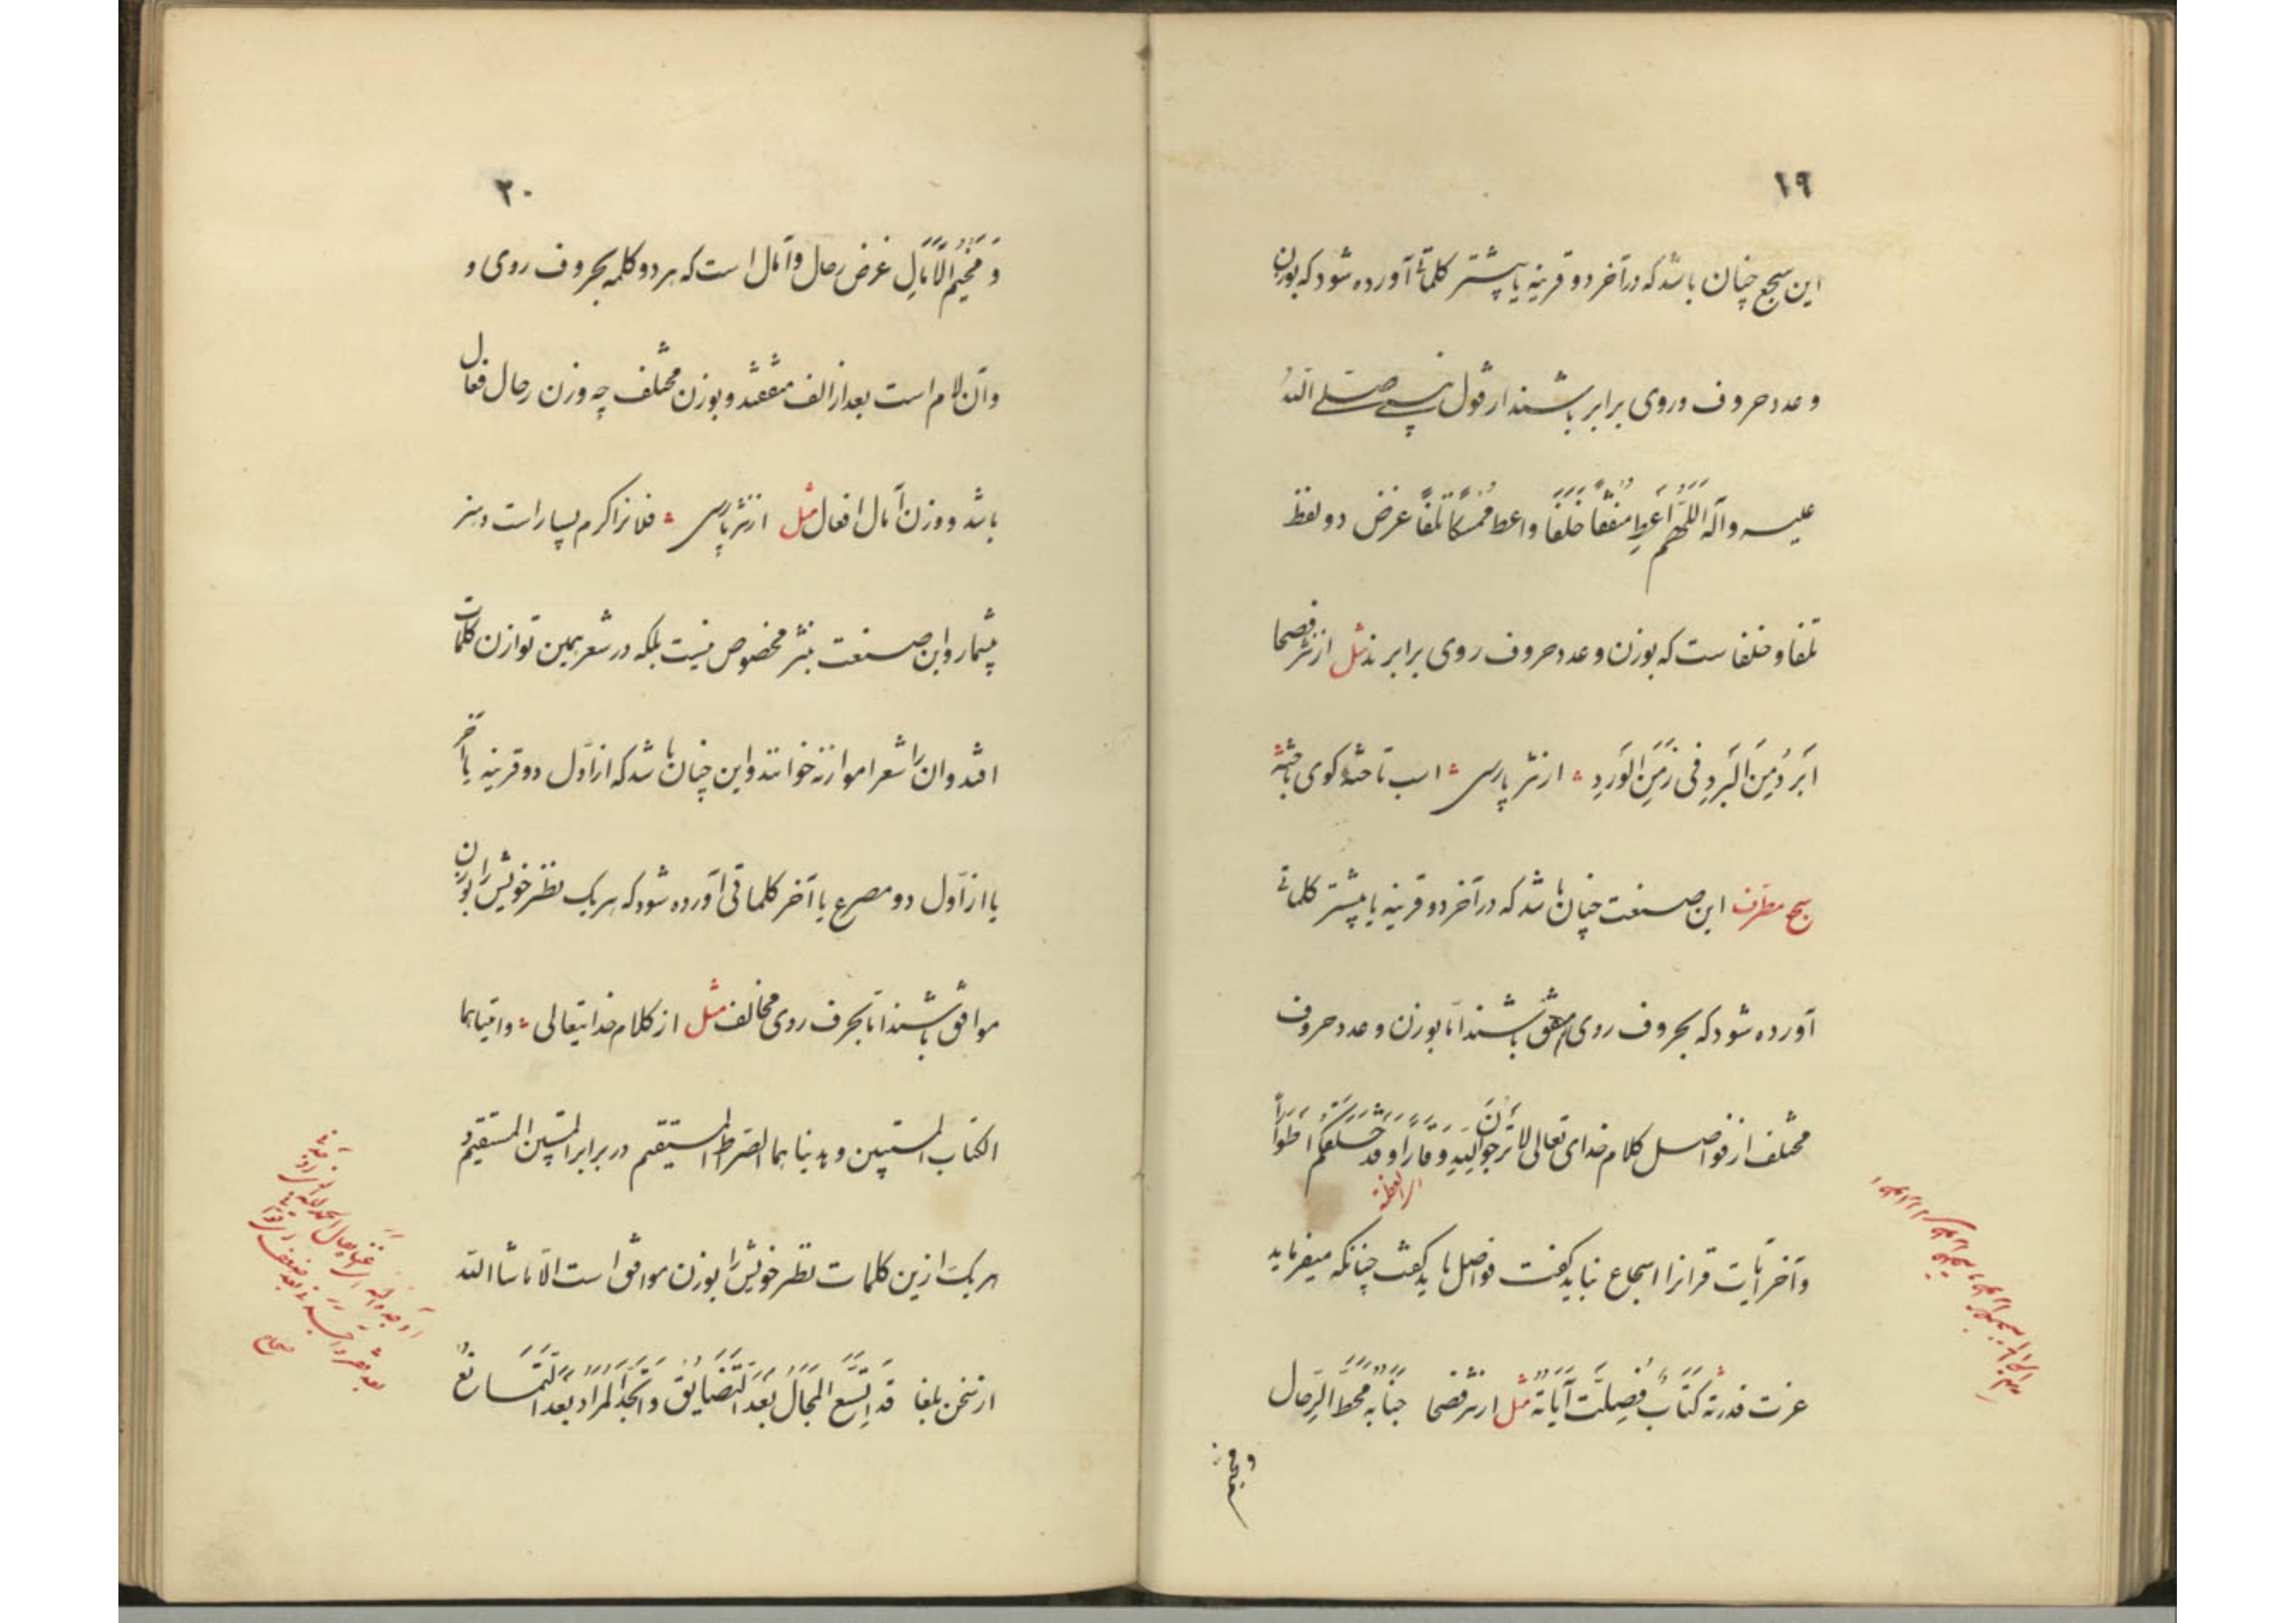 ١٩
این سجع چنان باشد که در آخر دو قرینه یا بیشتر کلماتی آورده شود که بوزن
و عدد حروف و روی برابر باشند از قول نبی صلی الله
علیه و آله اَللّهُمَّ اَعطِ مُنفِقاً خَلَفاً و اعط مُمسِکاً تَلَفاً غرض دو لفظ
تلفا و خلفا ست که بوزن و عدد حروف روی برابرند مثل از نثر فصحا
اَبرَدُ مِنَ البَردِ فی زَمَنِ الوَردِ از نثر پارسی اسب تاخته کوی باخته
سجع مطرف این صنعت چنان باشد که در آخر دو قرینه یا بیشتر کلماتی
آورده شود که بحروف روی متفق باشند اما بوزن و عدد حروف
مختلف از فواصل کلام خدای تعالی لا تَرجُونَ لِلّهِ وَقاراً و قَد خَلَقَکُم اَطواراً
و آخر آیات قرانرا اسجاع نباید گفت فواصل باید گفت چنانکه میفرماید
عزت قدرته کِتابٌ فُصِلَت آیاتُهُ مثل از نثر فصحا جَنابُهُ مَحَطُّ الرِحال
و مخیم
٢٠
وَ مُخَیَّمُ الآمالِ غرض رحال و آمال است که هر دو کلمه بحروف روی و
و آن لام است بعد از الف متفقند و بوزن مختلف چه وزن رحال فعال
باشد و وزن آمال افعال مثل از نثر پارسی فلانرا کرم بسیار است و هنر
بیشمار و این صنعت بنثر مخصوص نیست بلکه در شعر همین توازن کلمات
افتد و ان را شعرا موازنه خوانند و این چنان باشد که از اول دو قرینه یا آخر
یا از اول دو مصرع یا آخر کلماتی آورده شود که هر یک نظیر خویش را بوزن
موافق باشند اما بحرف روی مخالف مثل از کلام خدایتعالی و اتیناهما
الکتاب المستبین و هدیناهما الصراط المستقیم در برابر المستبین المستقیم و
هر یک ازین کلمات نظیر خویش را بوزن موافق است الا ماشاالله
از سخن بلغا قَد اِتَّسَعَ المَجالُ بَعدَ التَضایُق وَ اتَّجَهَ المُرادُ بَعدَ التَمانُع